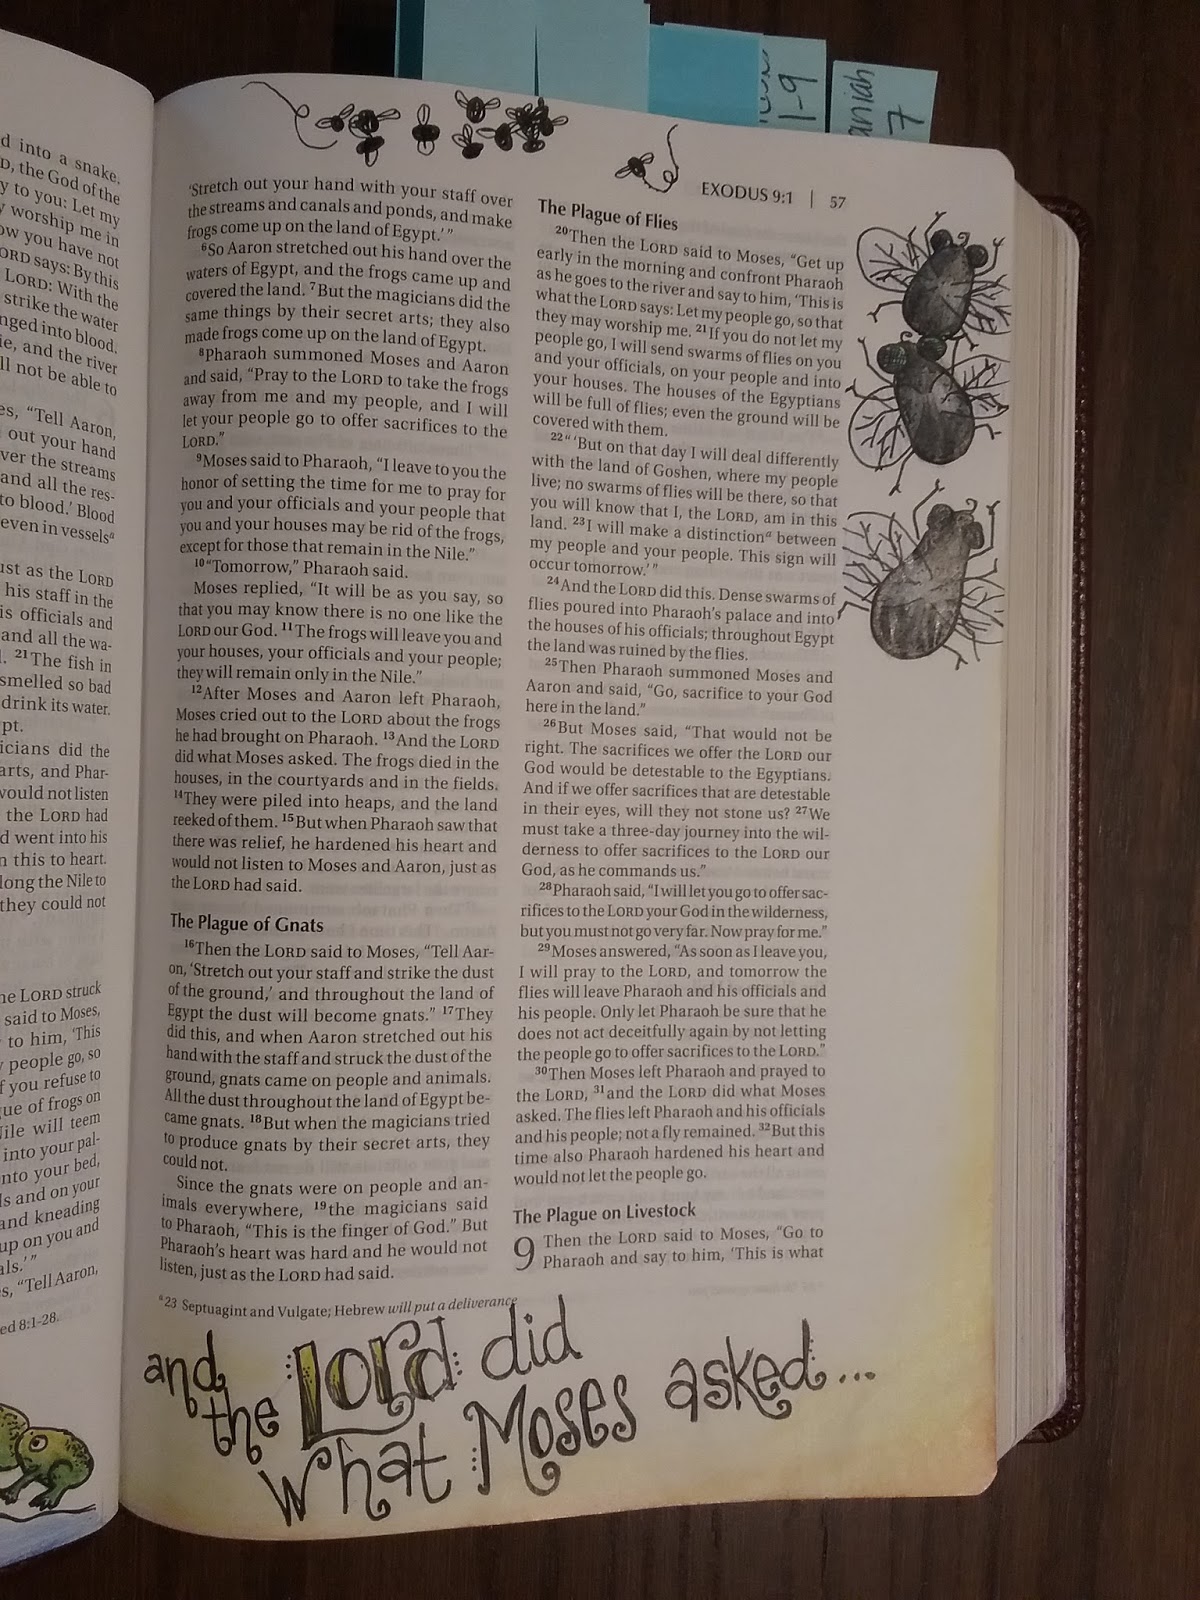 1-9
aniah
7
d into a snake.
D, the God of the
y to you: Let my
y worship me in
ow you have not
ORD says: By this
LORD: With the
strike the water
nged into blood.
ie, and the river
ll not be able to
es, “Tell Aaron,
out your hand
ver the streams
and all the res-
to blood.’ Blood
even in vesselsa
ust as the LORD
his staff in the
is officials and
and all the wa-
21The fish in
smelled so bad
drink its water.
pt.
icians did the
arts, and Phar-
would not listen
the LORD had
d went into his
n this to heart.
long the Nile to
they could not
he LORD struck
said to Moses,
to him, ‘This
y people go, so
f you refuse to
gue of frogs on
Nile will teem
into your pal-
nto your bed,
ls and on your
and kneading
up on you and
als.’”
s, “Tell Aaron,
ed 8:1-28.
EXODUS 9:1 | 57
‘Stretch out your hand with your staff over
the streams and canals and ponds, and make
frogs come up on the land of Egypt.’”
6So Aaron stretched out his hand over the
waters of Egypt, and the frogs came up and
covered the land. 7But the magicians did the
same things by their secret arts; they also
made frogs come up on the land of Egypt.
8Pharaoh summoned Moses and Aaron
and said, “Pray to the LORD to take the frogs
away from me and my people, and I will
let your people go to offer sacrifices to the
LORD.”
9Moses said to Pharaoh, “I leave to you the
honor of setting the time for me to pray for
you and your officials and your people that
you and your houses may be rid of the frogs,
except for those that remain in the Nile.”
10“Tomorrow,” Pharaoh said.
Moses replied, “It will be as you say, so
that you may know there is no one like the
LORD our God. 11The frogs will leave you and
your houses, your officials and your people;
they will remain only in the Nile.”
12After Moses and Aaron left Pharaoh,
Moses cried out to the LORD about the frogs
he had brought on Pharaoh. 13And the LORD
did what Moses asked. The frogs died in the
houses, in the courtyards and in the fields.
14They were piled into heaps, and the land
reeked of them. 15But when Pharaoh saw that
there was relief, he hardened his heart and
would not listen to Moses and Aaron, just as
the LORD had said.
The Plague of Gnats
16Then the LORD said to Moses, “Tell Aar-
on, ‘Stretch out your staff and strike the dust
of the ground,’ and throughout the land of
Egypt the dust will become gnats.” 17They
did this, and when Aaron stretched out his
hand with the staff and struck the dust of the
ground, gnats came on people and animals.
All the dust throughout the land of Egypt be-
came gnats. 18But when the magicians tried
to produce gnats by their secret arts, they
could not.
Since the gnats were on people and an-
imals everywhere, 19the magicians said
to Pharaoh, “This is the finger of God.” But
Pharaoh’s heart was hard and he would not
listen, just as the LORD had said.
The Plague of Flies
20Then the LORD said to Moses, “Get up
early in the morning and confront Pharaoh
as he goes to the river and say to him, ‘This is
what the LORD says: Let my people go, so that
they may worship me. 21If you do not let my
people go, I will send swarms of flies on you
and your officials, on your people and into
your houses. The houses of the Egyptians
will be full of flies; even the ground will be
covered with them.
22“‘But on that day I will deal differently
with the land of Goshen, where my people
live; no swarms of flies will be there, so that
you will know that I, the LORD, am in this
land. 23I will make a distinctiona between
my people and your people. This sign will
occur tomorrow.’”
24And the LORD did this. Dense swarms of
flies poured into Pharaoh’s palace and into
the houses of his officials; throughout Egypt
the land was ruined by the flies.
25Then Pharaoh summoned Moses and
Aaron and said, “Go, sacrifice to your God
here in the land.”
26But Moses said, “That would not be
right. The sacrifices we offer the LORD our
God would be detestable to the Egyptians.
And if we offer sacrifices that are detestable
in their eyes, will they not stone us? 27We
must take a three-day journey into the wil-
derness to offer sacrifices to the LORD our
God, as he commands us.”
28Pharaoh said, “I will let you go to offer sac-
rifices to the LORD your God in the wilderness,
but you must not go very far. Now pray for me.”
29Moses answered, “As soon as I leave you,
I will pray to the LORD, and tomorrow the
flies will leave Pharaoh and his officials and
his people. Only let Pharaoh be sure that he
does not act deceitfully again by not letting
the people go to offer sacrifices to the LORD.”
30Then Moses left Pharaoh and prayed to
the LORD, 31and the LORD did what Moses
asked. The flies left Pharaoh and his officials
and his people; not a fly remained. 32But this
time also Pharaoh hardened his heart and
would not let the people go.
The Plague on Livestock
9 Then the LORD said to Moses, “Go to
Pharaoh and say to him, ‘This is what
a23 Septuagint and Vulgate; Hebrew will put a deliverance
and
the Lord did
what Moses asked...